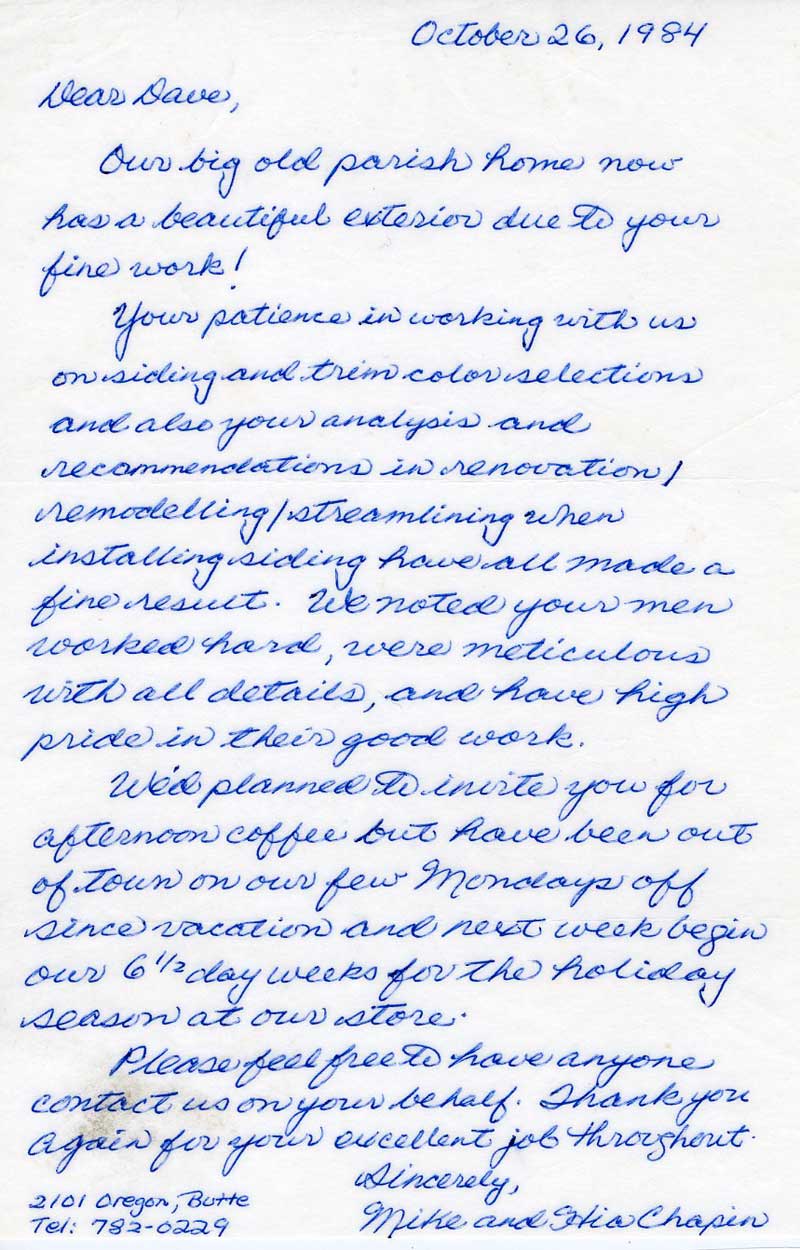 October 26, 1984
Dear Dave,
Our big old parish home now
has a beautiful exterior due to your
fine work!
Your patience in working with us
on siding and trim color selections
and also your analysis and
recommendations in renovation/
remodelling/streamlining when
installing siding have all made a
fine result. We noted your men
worked hard, were meticulous
with all details, and have high
pride in their good work.
We'd planned to invite you for
afternoon coffee but have been out
of town on our few Mondays off
since vacation and next week begin
our 6 1/2 day weeks for the holiday
season at our store.
Please feel free to have anyone
contact us on your behalf. Thank you
again for your excellent job throughout.
Sincerely,
Mike and Chapin
2101 Oregon, Butte
Tel: 782-0229